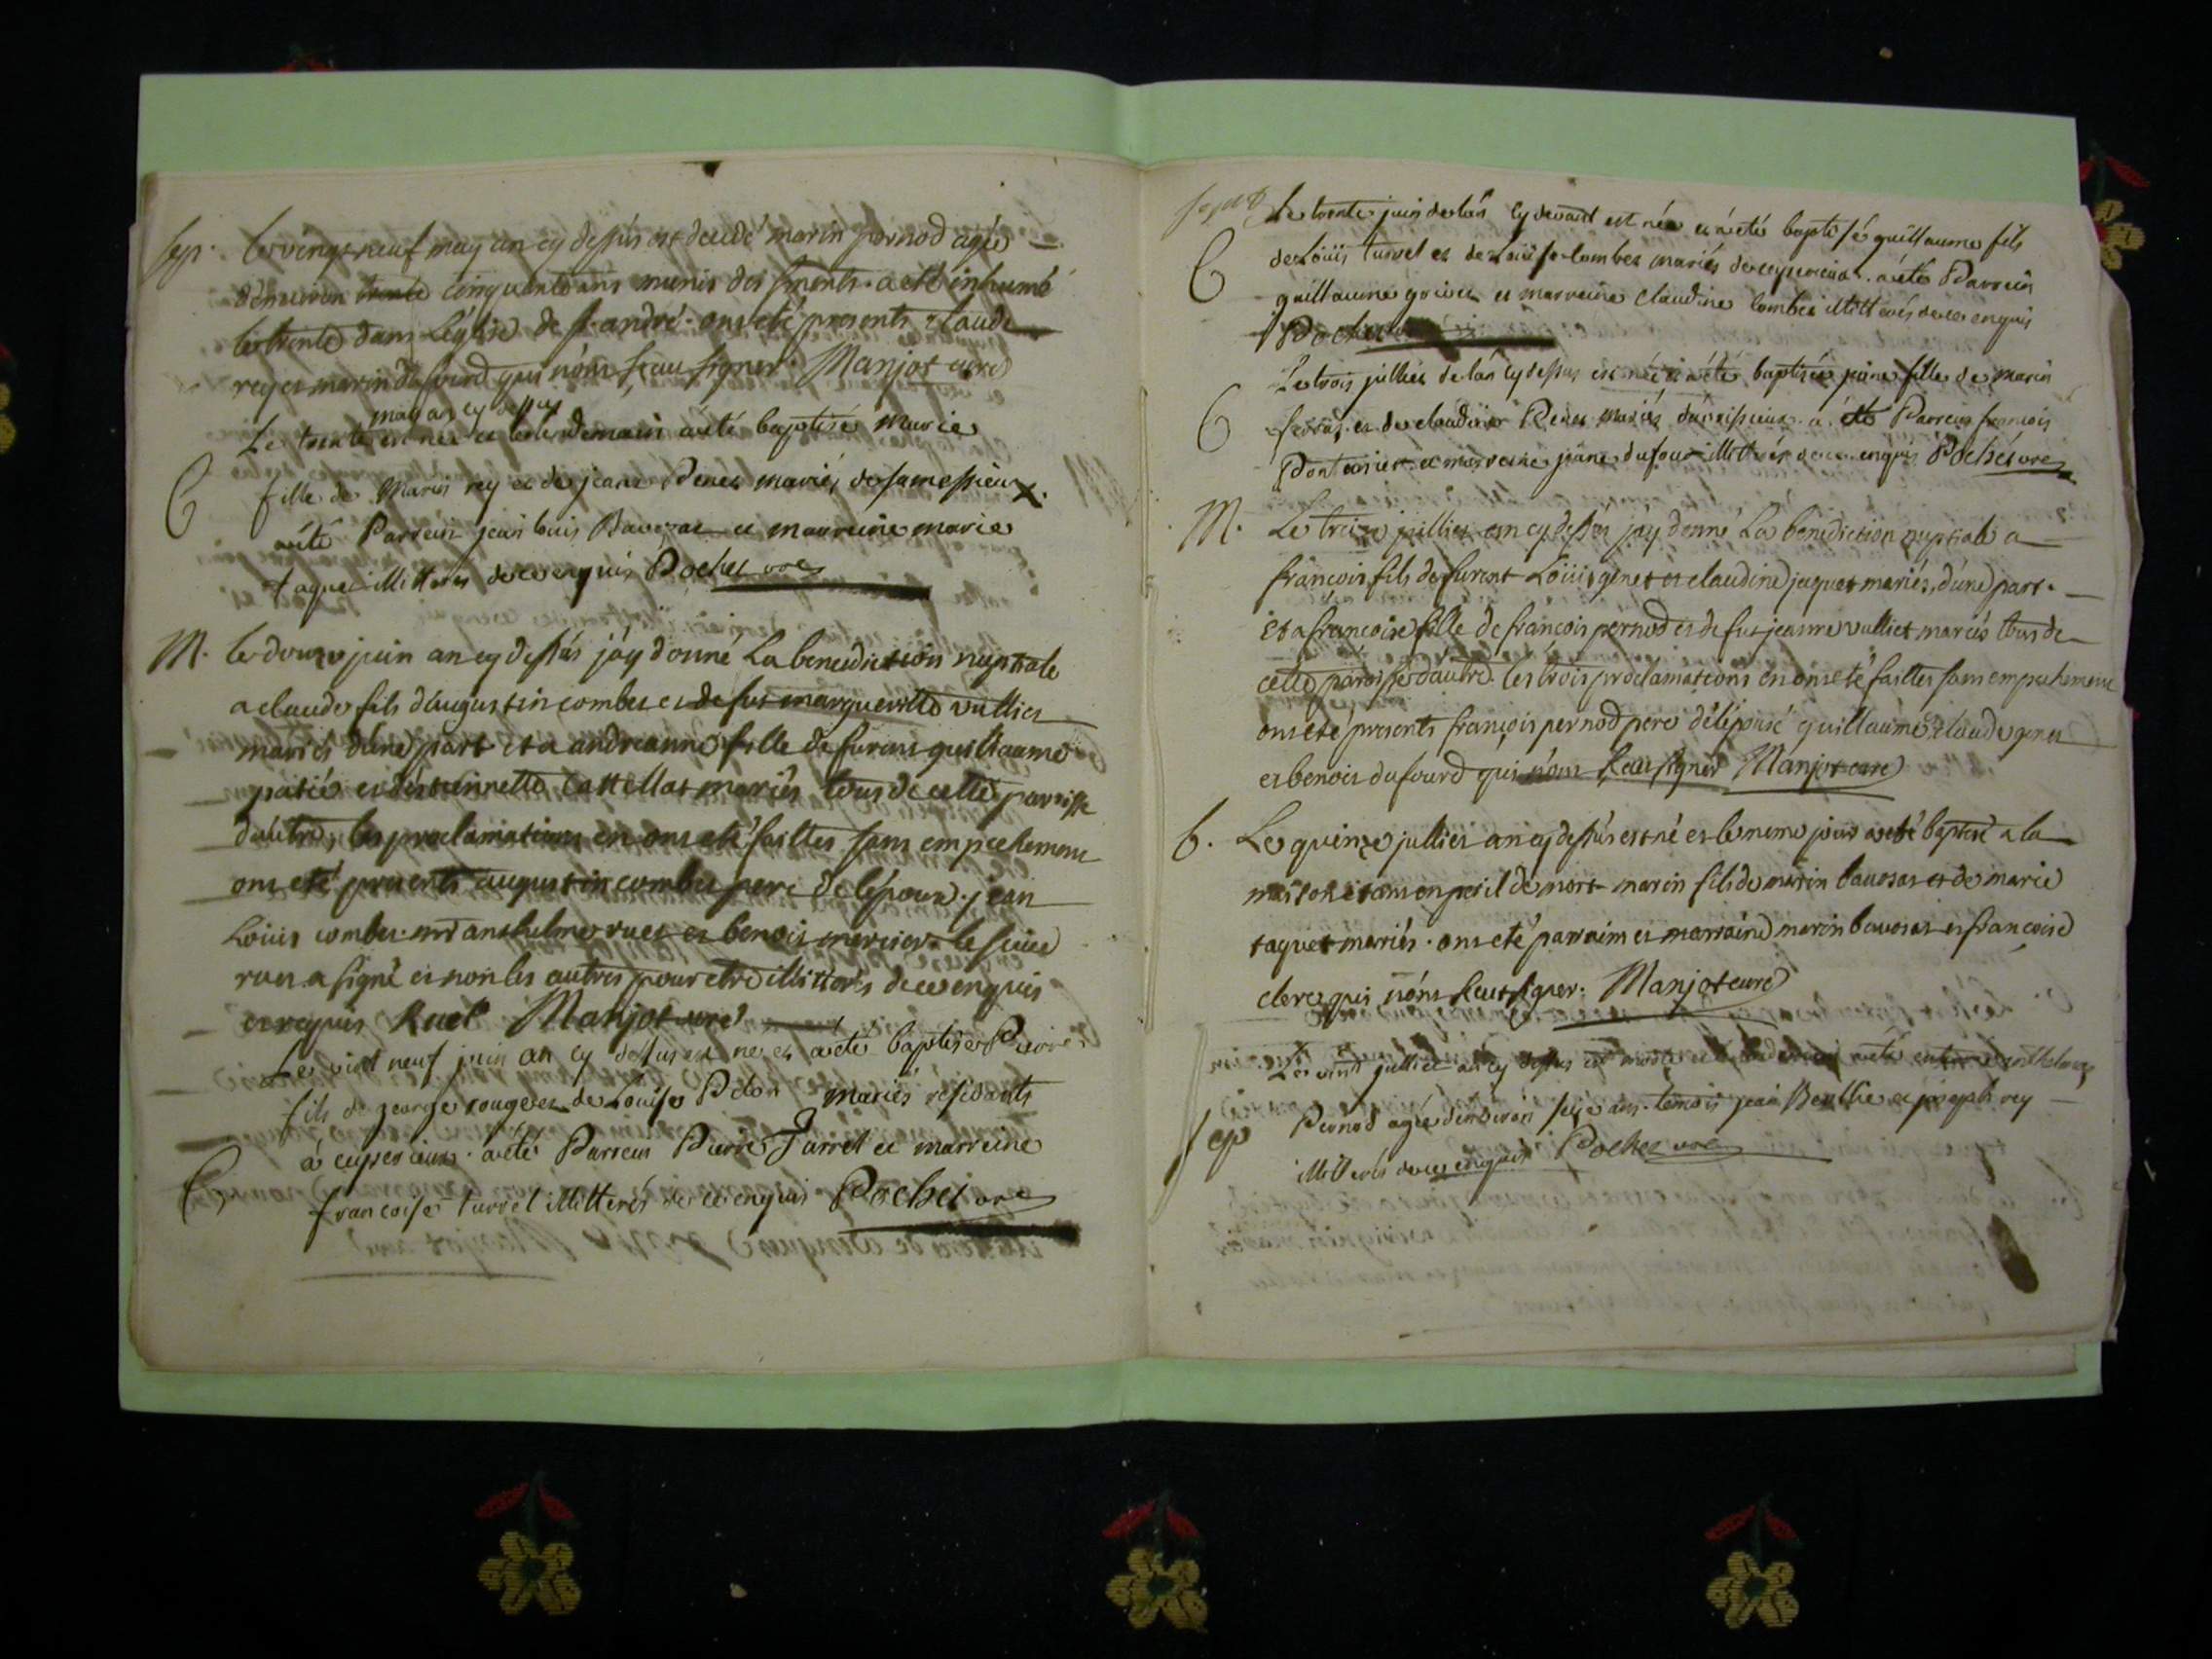 sep. le vingt neuf may an cy dessus est decedé marin pernod agée
d'environ trente cinquante ans munis des sments. a eté inhumé
le trente dans l'église de st andré. ont eté presents claude
rey et marin dufourd qui n'ont sceu signer. Manjot curé
may an cy dessus
Le trente est née et le lendemain a été baptisée marie
B fille de Marin rey et de jeane Denes mariés de
a été Parrein jean louis et marreine marie
taquet illitteres de ce enquis Pochet vre
M. le douze juin an cy dessus j'ay donné la benediction nuptiale
a claude fils d'augustin combet et de fue margueritte vulliet
mariés d'une part et a andreanne fille de furent guilliaume
et d'estiennette mariés tous de cette parroisse
d'autre, les proclamations en ont eté faittes sans empechement
ont eté presents augustin combet pere de l'epoux. jean
Louis combet. mr anthelme ruet et benois mercier. le sieur
ruet a signé et non les autres pour etre illitterés de ce enquis
et requis Ruet Manjot curé
Le vint neuf juin an cy dessus est né et a été baptisé Pierre
fils de george rouge et de Louise mariés residants
à a été Parrein Pierre Turrel et marreine
B francoise turrel illitterés de ce enquis Pochet vre
Le trente juin de l'an cy devant est née et a été baptisé guillaume fils
B de Loüis turrel et de Loüise combet mariés de . a été Parrein
guillaume et marreine claudine combet illitterés de ce enquis
Pochet
Le trois jullliet de l'an cy dessus est née et a été baptisée jeane fille de marin
B et de claudine Denes mariés . a été Parrein francois
et marreine jeane dufour illiterés de ce enquis Pochet vre
M. Le treize julliet an cy dessus j'ay donné La benediction nuptiale a
françois fils de furent Loüis genet et claudine jaquet mariés, d'une part.
Et a françoise fille de françois pernod et de fue jeanne vulliet mariés tous de
cette paroisse d'autre. les trois proclamations en ont eté faittes sans empechement
ont eté presents françois pernod pere de l'epouse guillaume et claude genet
et benois dufourd qui n'ont sceu signer Manjot curé
b. Le quinze julliet an cy dessus est né et le meme jour a eté baptisé a la
maison etant en peril de mort marin fils de marin bavosat et de marie
taquet mariés. ont eté parraim et marraine marin bavosat et françoise
clerc qui n'ont sceut signer. Manjot curé
Le vint julliet an cy dessus est morte et le lendemain a été enterré anthelme
sep Pernod agée d'environ seze ans. temois jean et joseph rey
illitterés de ce enquis Pochet vre